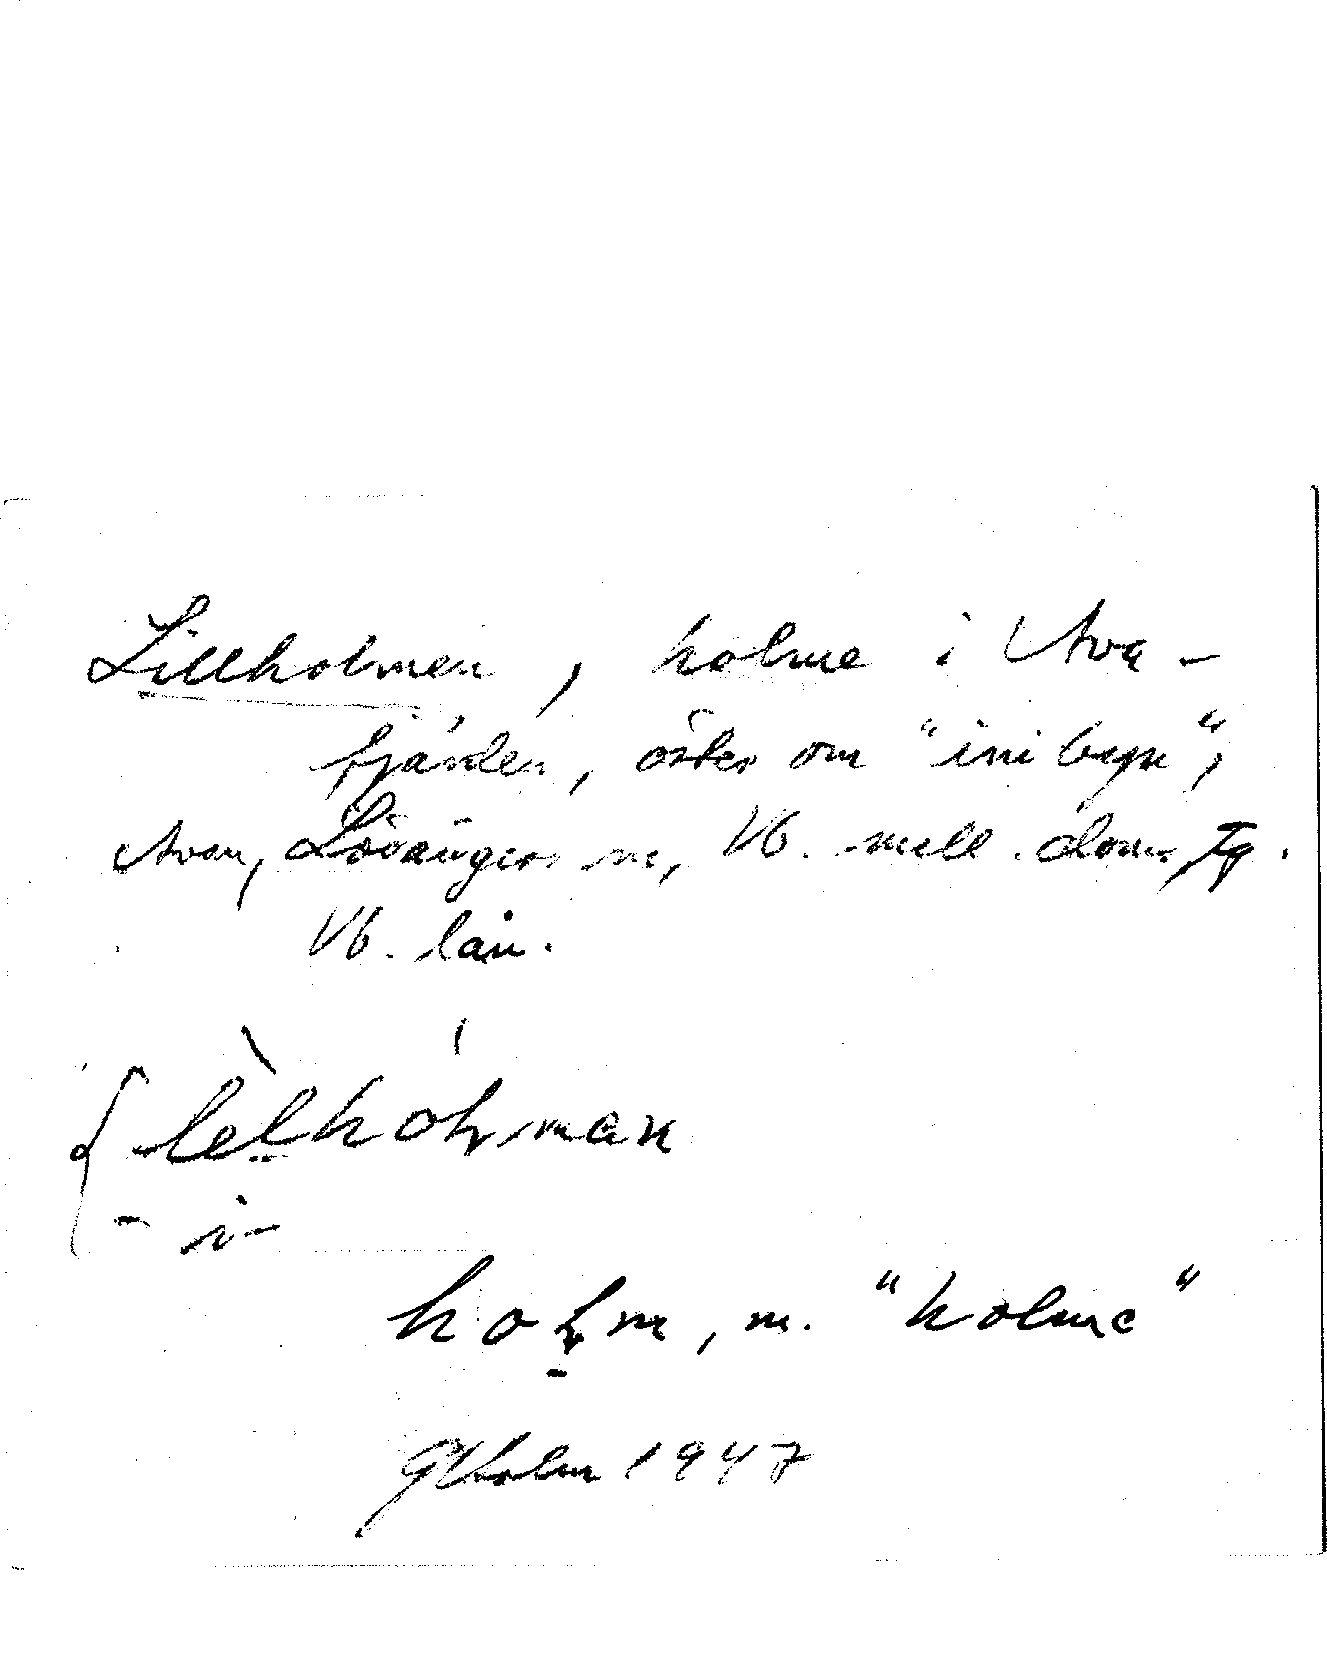 Lillholmen, holme i Ava-
fjärden, öster om "inibyn",
Avan, Lövångers sn, Vb. mell. doms tg.
Vb. län.
lèlhòɫman
- i -
hoɫm, m. "holme"
GHolm 1947